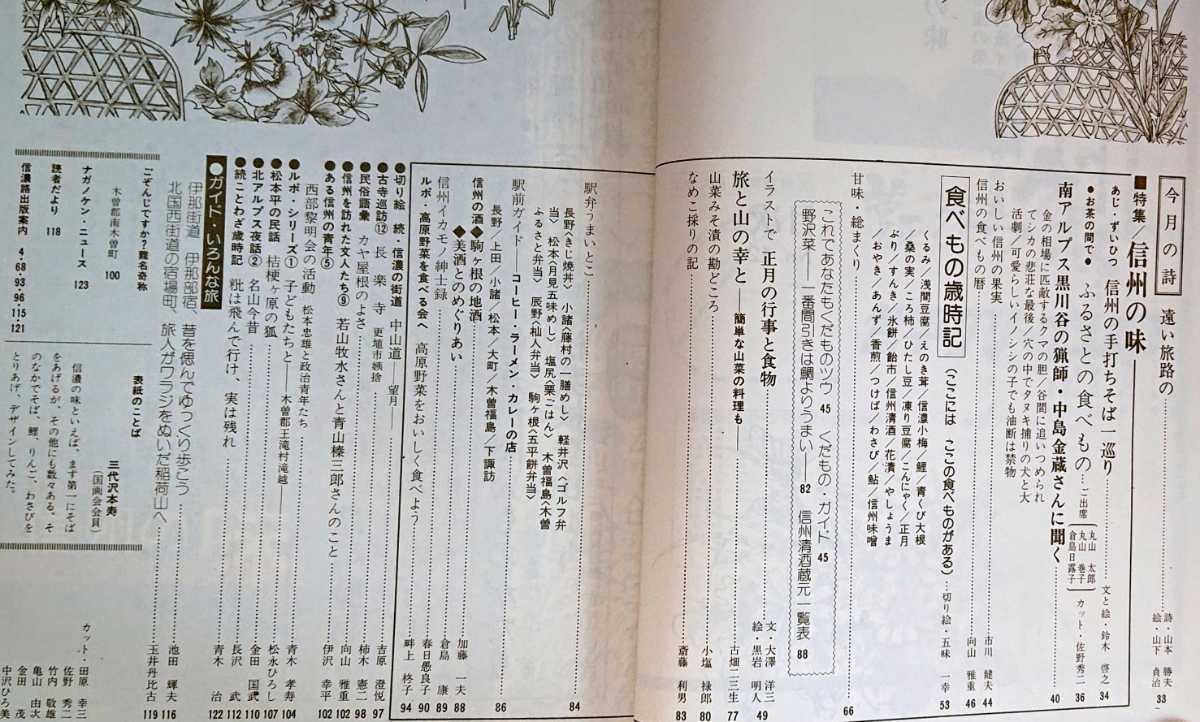 今月の詩 遠い旅路の……詩・山本 勝夫 絵・山下 貞治 33
■特集／信州の味
あじ・ずいひつ 信州の手打ちそば一巡り……文と絵・鈴木 啓之 34
●お茶の間で● ふるさとの食べもの…ご出席 丸山 太郎 丸山 巻子 倉島日露子 カット・佐野秀二 36
南アルプス黒川谷の猟師・中島金蔵さんに聞く……40
金の相場に匹敵するクマの胆／谷間に追いつめられ
てシカの悲壮な最後／穴の中でタヌキ捕りの犬と大
活劇／可愛らしいイノシシの子でも油断は禁物
おいしい信州の果実……市川 健夫 44
信州の食べもの暦……向山 雅重 46
食べもの歳時記 （ここには ここの食べものがある）…切り絵・五味 一幸 53
くるみ／浅間豆腐／えのき茸／信濃小梅／鯉／青くび大根
／桑の実／ころ柿／ひたし豆／凍り豆腐／こんにゃく／正月
ぶり／すんき／氷餅／飴市／信州清酒／花漬／やしょうま
／おやき／あんず／香煎／つけば／わさび／鮎／信州味噌
甘味・総まくり……66
これであなたもくだものツウ 45 くだもの・ガイド 45
野沢菜——一番間引きは鯛よりうまい 82 信州清酒蔵元一覧表 88
イラストで 正月の行事と食物……文・大澤 洋三 絵・黒岩 明人 49
旅と山の幸と——簡単な山菜の料理も——……古畑二三生 77
山菜みそ漬の勘どころ……小塩 禄郎 80
なめこ採りの記……斎藤 利男 83
駅弁うまいとこ……84
長野〈きじ焼丼〉 小諸〈藤村の一膳めし〉 軽井沢〈ゴルフ弁
当〉 松本〈月見五味めし〉 塩尻〈栗ごはん〉 木曽福島〈木曽
ふるさと弁当〉 辰野〈杣人弁当〉 駒ヶ根〈五平餅弁当〉
駅前ガイド——コーヒー・ラーメン・カレーの店……86
長野／上田／小諸／松本／大町／木曽福島／下諏訪
信州の酒◆駒ヶ根の地酒……加藤 一夫 88
◆美酒とのめぐりあい……倉島 康 89
信州イカモノ紳士録……春日愚良子 90
ルポ・高原野菜を食べる会へ 高原野菜をおいしく食べよう……畔上 柊子 94
●切り絵 続・信濃の街道 中山道——望月……吉原 澄悦 97
●古寺巡訪⑫ 長楽寺 更埴市姨捨
●民俗語彙 カヤ屋根のよさ……柿木 憲二 98
●信州を訪れた文人たち⑨ 若山牧水さんと青山榛三郎さんのこと……向山 雅重 102
●ある信州の青年⑤……伊沢 幸平 102
西部黎明会の活動 松本忠雄と政治青年たち
●ルポ・シリーズ① 子どもたちと——木曽郡王滝村滝越——……青木 孝寿 104
●松本平の民話 桔梗ヶ原の狐……松永ひろし 107
●北アルプス夜話② 名山今昔……金田 国武 110
●続ことわざ歳時記……長沢 武 112
籾は飛んで行け、実は残れ……青木 治 122
●ガイド・いろんな旅
伊那街道 伊那部宿、昔を偲んでゆっくり歩こう……池田 輝夫 116
北国西街道の宿場町、旅人がワラジをぬいだ稲荷山へ…玉井丹比古 119
ごぞんじですか？難名奇称
木曽郡南木曽町 100
ナガノケン・ニュース 123
読者だより 118
信濃路出版案内
4・68・93・96・115・121
表紙のことば
三代沢本寿
（国画会会員）
信濃の味といえば、まず第一にそば
をあげるが、その他にも数々ある。そ
のなかでそば、鯉、りんご、わさびを
とりあげ、デザインしてみた。
カット・田原 幸三
佐野 秀二
竹内 敬雄
亀山 由次
金田 茂
中沢ひろ美